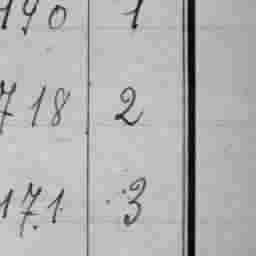 190 1
718 2
171 3